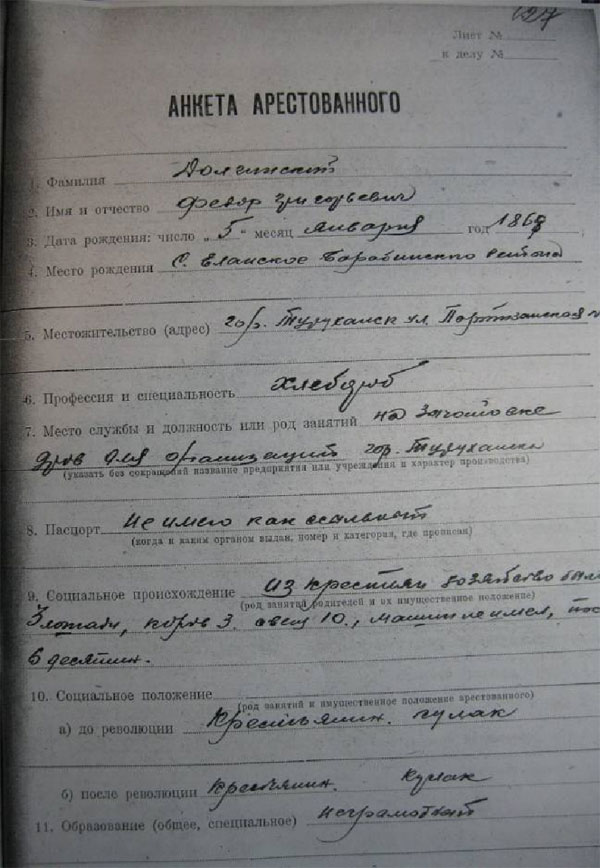 127
Лист №
к делу №
АНКЕТА АРЕСТОВАННОГО
1. Фамилия Долгинский
2. Имя и отчество Федор Григорьевич
3. Дата рождения: число „5“ месяц января год 1867
4. Место рождения С. Еланское Барабинского района
5. Местожительство (адрес) гор. Туруханск ул. Партизанская
6. Профессия и специальность Хлебороб
7. Место службы и должность или род занятий на заготовке
дров для организаций гор. Туруханска
(указать без сокращений название предприятия или учреждения и характер производства)
8. Паспорт Не имею как ссыльный
(когда и каким органом выдан, номер и категория, где прописан)
9. Социальное происхождение из крестьян хозяйство было
(род занятий родителей и их имущественное положение)
3 лошади, коров 3. овец 10., машин не имел, пос
6 десятин.
10. Социальное положение
(род занятий и имущественное положение арестованного)
а) до революции Крестьянин. кулак
б) после революции Крестьянин. Кулак
11. Образование (общее, специальное) неграмотный